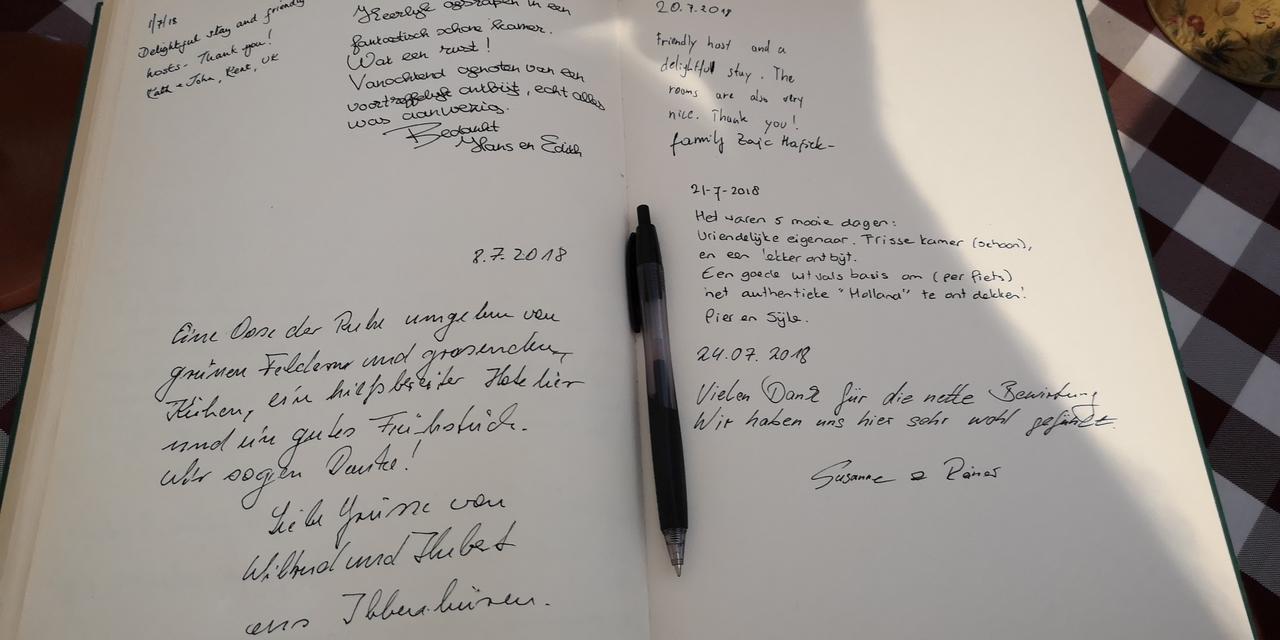 1/7/18
Delightful stay and friendly
hosts - Thank you!
Kath + John, Kent, UK
Heerlijk geslapen in een
fantastisch schone kamer.
Wat een rust!
Vanochtend genoten van een
voortreffelijk ontbijt, echt alles
was aanwezig.
Bedankt
Hans en Edith
8.7.2018
Eine Oase der Ruhe umgeben von
grünen Feldern und grasenden
Kühen, ein hilfsbereiter Hotelier
und ein gutes Frühstück.
Wir sagen Danke!
Liebe Grüsse von
Wiltrud und Hubert
aus Ibbenbüren.
20.7.2018
Friendly host and a
delightful stay. The
rooms are also very
nice. Thank you!
family Zajc
21-7-2018
Het waren 5 mooie dagen:
Vriendelijke eigenaar. Frisse kamer (schoon),
en een lekker ontbijt.
Een goede uitvals basis om (per fiets)
het authentieke "Holland" te ontdekken!
Pier en
24.07.2018
Vielen Dank für die nette Bewirtung
Wir haben uns hier sehr wohl gefühlt.
Susanne & Rainer